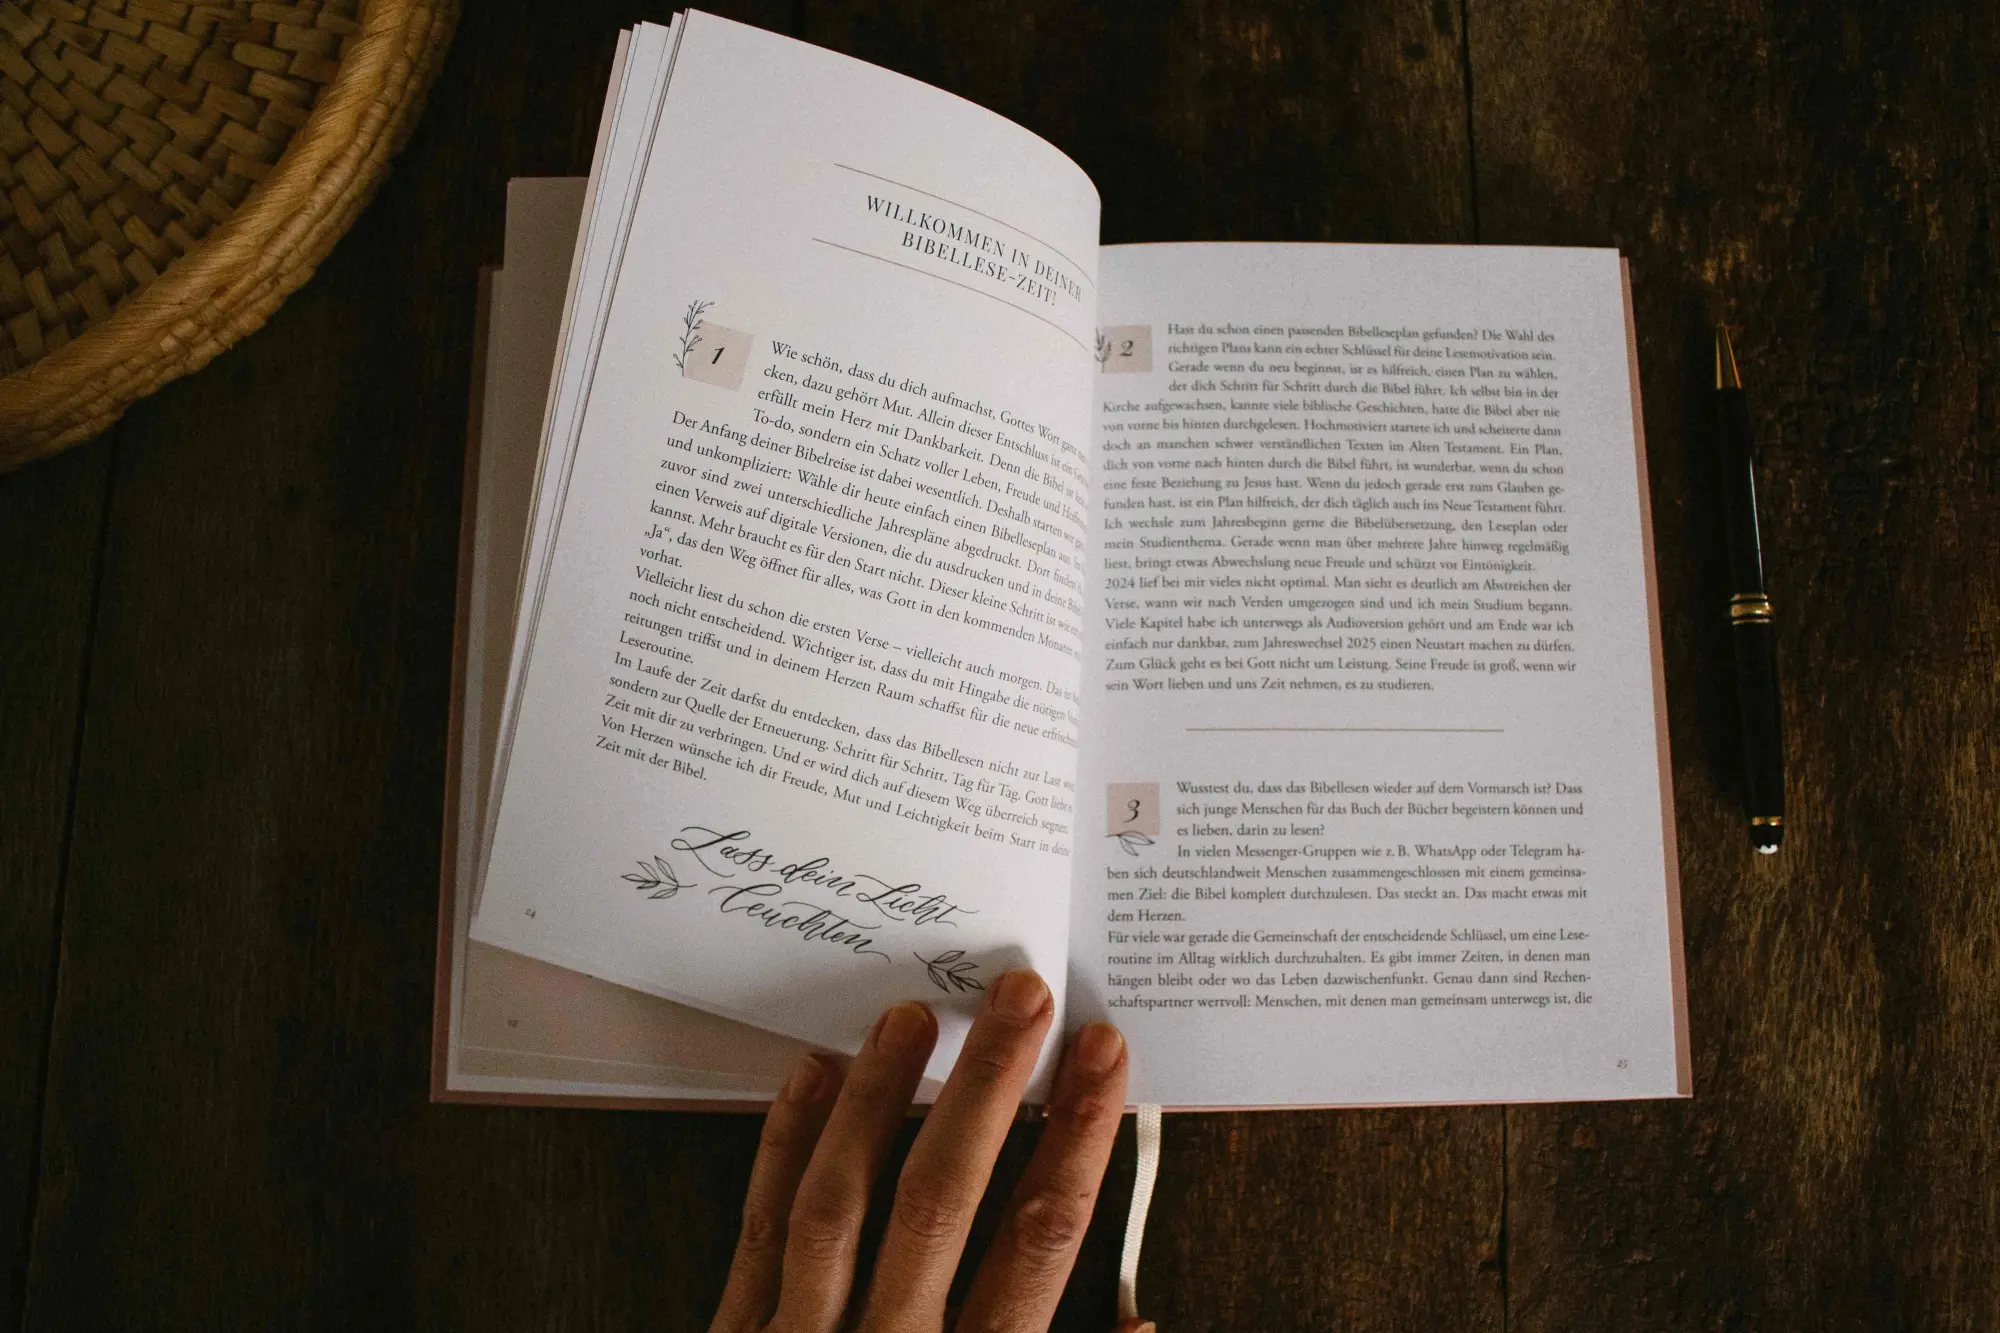 WILLKOMMEN IN DEINER
BIBELLESE-ZEIT!
1
Wie schön, dass du dich aufmachst, Gottes Wort ganz
cken, dazu gehört Mut. Allein dieser Entschluss ist ein
erfüllt mein Herz mit Dankbarkeit. Denn die Bibel ist
To-do, sondern ein Schatz voller Leben, Freude und
Der Anfang deiner Bibelreise ist dabei wesentlich. Deshalb starten wir
und unkompliziert: Wähle dir heute einfach einen Bibelleseplan aus.
zuvor sind zwei unterschiedliche Jahrespläne abgedruckt. Dort
einen Verweis auf digitale Versionen, die du ausdrucken und in deine
kannst. Mehr braucht es für den Start nicht. Dieser kleine Schritt ist wie
„Ja“, das den Weg öffnet für alles, was Gott in den kommenden Monaten
vorhat.
Vielleicht liest du schon die ersten Verse – vielleicht auch morgen. Das ist
noch nicht entscheidend. Wichtiger ist, dass du mit Hingabe die nötigen
reitungen triffst und in deinem Herzen Raum schaffst für die neue
Leseroutine.
Im Laufe der Zeit darfst du entdecken, dass das Bibellesen nicht zur Last
sondern zur Quelle der Erneuerung. Schritt für Schritt, Tag für Tag. Gott liebt
Zeit mit dir zu verbringen. Und er wird dich auf diesem Weg überreich segnen.
Von Herzen wünsche ich dir Freude, Mut und Leichtigkeit beim Start in deine
Zeit mit der Bibel.
Lass dein Licht
leuchten
24
12
2
Hast du schon einen passenden Bibelleseplan gefunden? Die Wahl des
richtigen Plans kann ein echter Schlüssel für deine Lesemotivation sein.
Gerade wenn du neu beginnst, ist es hilfreich, einen Plan zu wählen,
der dich Schritt für Schritt durch die Bibel führt. Ich selbst bin in der
Kirche aufgewachsen, kannte viele biblische Geschichten, hatte die Bibel aber nie
von vorne bis hinten durchgelesen. Hochmotiviert startete ich und scheiterte dann
doch an manchen schwer verständlichen Texten im Alten Testament. Ein Plan,
dich von vorne nach hinten durch die Bibel führt, ist wunderbar, wenn du schon
eine feste Beziehung zu Jesus hast. Wenn du jedoch gerade erst zum Glauben ge-
funden hast, ist ein Plan hilfreich, der dich täglich auch ins Neue Testament führt.
Ich wechsle zum Jahresbeginn gerne die Bibelübersetzung, den Leseplan oder
mein Studienthema. Gerade wenn man über mehrere Jahre hinweg regelmäßig
liest, bringt etwas Abwechslung neue Freude und schützt vor Eintönigkeit.
2024 lief bei mir vieles nicht optimal. Man sieht es deutlich am Abstreichen der
Verse, wann wir nach Verden umgezogen sind und ich mein Studium begann.
Viele Kapitel habe ich unterwegs als Audioversion gehört und am Ende war ich
einfach nur dankbar, zum Jahreswechsel 2025 einen Neustart machen zu dürfen.
Zum Glück geht es bei Gott nicht um Leistung. Seine Freude ist groß, wenn wir
sein Wort lieben und uns Zeit nehmen, es zu studieren.
3
Wusstest du, dass das Bibellesen wieder auf dem Vormarsch ist? Dass
sich junge Menschen für das Buch der Bücher begeistern können und
es lieben, darin zu lesen?
In vielen Messenger-Gruppen wie z. B. WhatsApp oder Telegram ha-
ben sich deutschlandweit Menschen zusammengeschlossen mit einem gemeinsa-
men Ziel: die Bibel komplett durchzulesen. Das steckt an. Das macht etwas mit
dem Herzen.
Für viele war gerade die Gemeinschaft der entscheidende Schlüssel, um eine Lese-
routine im Alltag wirklich durchzuhalten. Es gibt immer Zeiten, in denen man
hängen bleibt oder wo das Leben dazwischenfunkt. Genau dann sind Rechen-
schaftspartner wertvoll: Menschen, mit denen man gemeinsam unterwegs ist, die
25